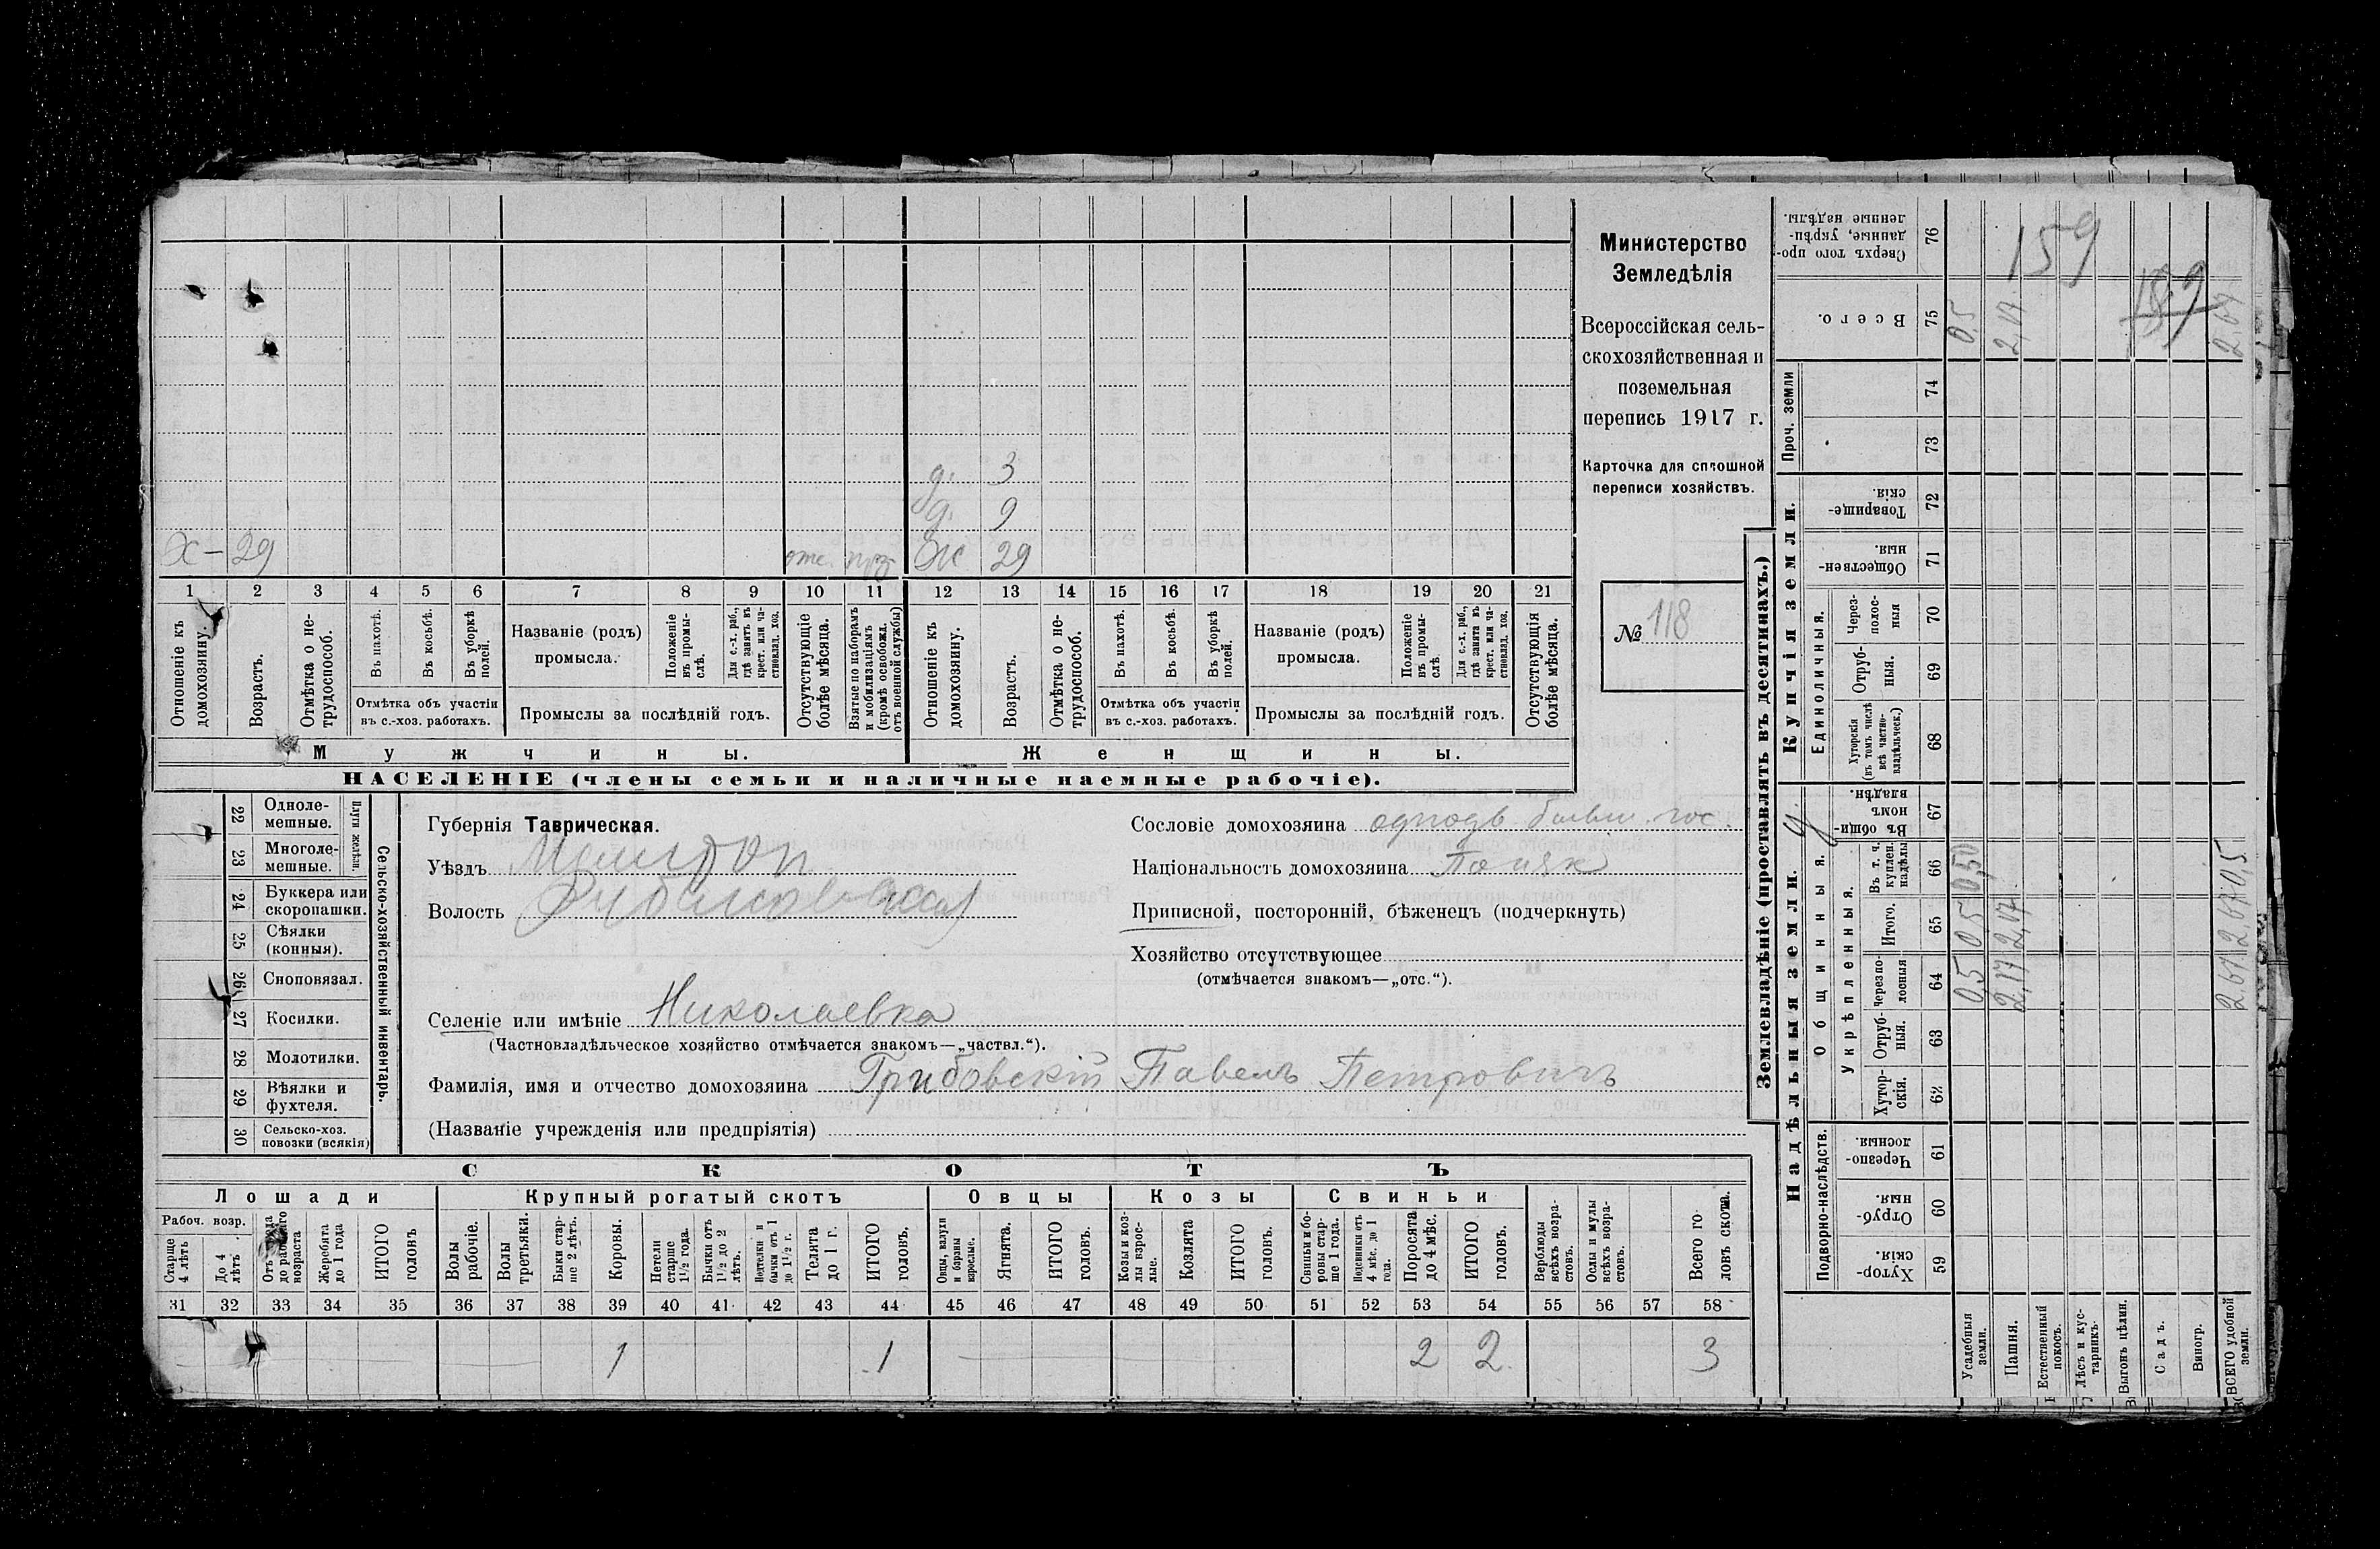 Министерство
Земледѣлія
Всероссійская сель-
скохозяйственная и
поземельная
перепись 1917 г.
Карточка для сплошной
переписи хозяйствъ.
№ 118
159
д. 3
д. 9
Х — 29 отс. Ж 29
1 2 3 4 5 6 7 8 9 10 11 12 13 14 15 16 17 18 19 20 21
Отношеніе къ домохозяину.
Возрастъ.
Отмѣтка о не-трудоспособ.
Въ пахотѣ.
Въ косьбѣ.
Въ уборкѣ полей.
Отмѣтка объ участіи
въ с.-хоз. работахъ.
Названіе (родъ)
промысла.
Положеніе въ промы-слѣ.
Для с.-х. раб., гдѣ занятъ въ крест. или ча-стновлад. хоз.
Промыслы за послѣдній годъ.
Отсутствующіе болѣе мѣсяца.
Взятые по наборамъ и мобилизаціямъ (кромѣ освобожд. отъ военной службы)
Отношеніе къ домохозяину.
Возрастъ.
Отмѣтка о не-трудоспособ.
Въ пахотѣ.
Въ косьбѣ.
Въ уборкѣ полей.
Отмѣтка объ участіи
въ с.-хоз. работахъ.
Названіе (родъ)
промысла.
Положеніе въ промы-слѣ.
Для с.-х. раб., гдѣ занята въ крест. или ча-стновлад. хоз.
Промыслы за послѣдній годъ.
Отсутствующія болѣе мѣсяца.
Мужчины.
Женщины.
НАСЕЛЕНІЕ (члены семьи и наличные наемные рабочіе).
22 Одноле-мешные.
23 Многоле-мешные.
Плуги желѣзн.
24 Буккера или скоропашки.
25 Сѣялки (конныя).
26 Сноповязал.
27 Косилки.
28 Молотилки.
29 Вѣялки и фухтеля.
30 Сельско-хоз. повозки (всякія)
Сельско-хозяйственный инвентарь.
Губернія Таврическая.
Уѣздъ Мелитоп
Волость
Селеніе или имѣніе Николаевка
(Частновладѣльческое хозяйство отмѣчается знакомъ—„частвл.“).
Фамилія, имя и отчество домохозяина Грибовскій Павелъ Петровичъ
(Названіе учрежденія или предпріятія)
Сословіе домохозяина
Національность домохозяина Полякъ
Приписной, посторонній, бѣженецъ (подчеркнуть)
Хозяйство отсутствующее
(отмѣчается знакомъ—„отс.“).
СКОТЪ
Лошади
Крупный рогатый скотъ
Овцы
Козы
Свиньи
Рабоч. возр.
Старше 4 лѣтъ
До 4 лѣтъ
Отъ года до рабочаго возраста
Жеребята до 1 года
ИТОГО головъ
Волы рабочіе.
Волы третьяки.
Быки стар-ше 2 лѣтъ.
Коровы.
Нетели старше 1½ года.
Бычки отъ 1½ до 2 лѣтъ.
Подтелки и бычки отъ 1 до 1½ г.
Телята до 1 г.
ИТОГО головъ.
Овцы, валухи и бараны взрослые.
Ягнята.
ИТОГО головъ.
Козы и коз-лы взрос-лые.
Козлята
ИТОГО головъ.
Свиньи и бо-ровы стар-ше 1 года.
Подсвинки отъ 4 мѣс. до 1 года.
Поросята до 4 мѣс.
ИТОГО головъ.
Верблюды всѣхъ возра-стовъ.
Ослы и мулы всѣхъ возра-стовъ.
Всего го-ловъ скота.
31 32 33 34 35 36 37 38 39 40 41 42 43 44 45 46 47 48 49 50 51 52 53 54 55 56 57 58
1 1 2 2 3
Землевладѣніе (проставлять въ десятинахъ.)
Надѣльныя земли.
Купчія земли.
Проч. земли
Подворно-наслѣдств.
Общинныя.
Укрѣпленныя.
Единоличныя.
Сверхъ того про-данные, укрѣп-ленные надѣлы. 76
Всего. 75 0,5
74
73
Товарище-скія. 72
Обществен-ныя. 71
Через-полос-ныя 70
Отруб-ныя. 69
Хуторскія (въ томъ числѣ всѣ частно-владѣльческ.) 68
Въ общин-номъ владѣн. 67
Въ т. ч. куплен. надѣлы 66 0,50
Итого. 65 0,5 2,17
Черезпо-лосныя 64 0,5 2,17
Отруб-ныя. 63
Хутор-скія. 62
Черезпо-лосныя. 61
Отруб-ныя. 60
Хутор-скія. 59
Усадебныя земли.
Пашня.
Естественный покосъ.
Лѣсъ и кус-тарникъ.
Выгонъ цѣлин.
Садъ.
Виногр.
ВСЕГО удобной земли.
2,67 2,67 0,5